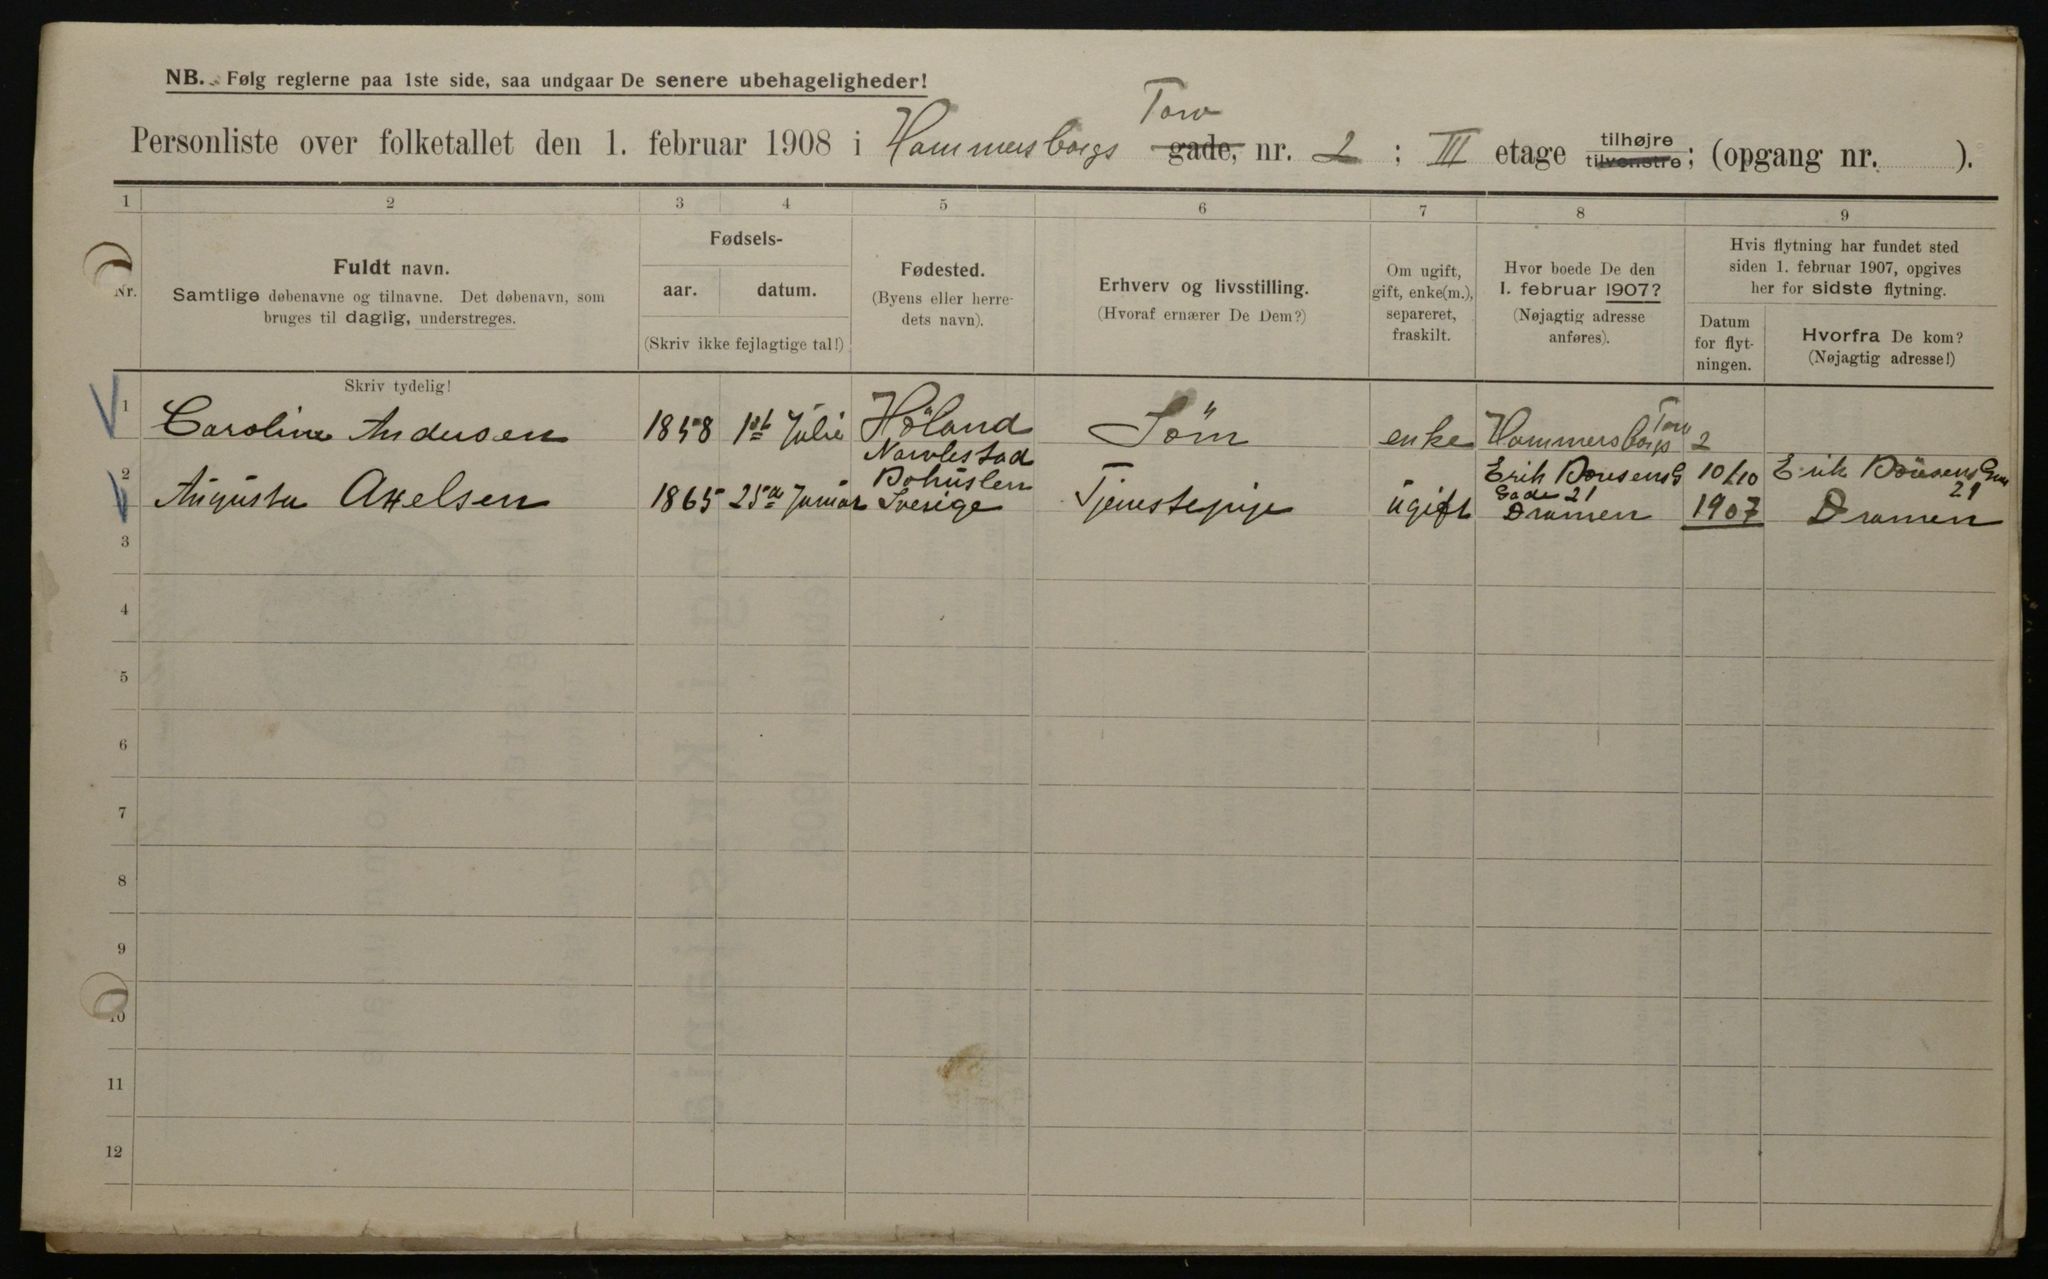 NB. Følg reglerne paa 1ste side, saa undgaar De senere ubehageligheder!
Torv
Personliste over folketallet den 1. februar 1908 i Hammersborgs gade, nr. 2 ; III etage tilhøjre tilvenstre; (opgang nr. ).
1 2 3 4 5 6 7 8 9
Nr.
Fuldt navn.
Samtlige døbenavne og tilnavne. Det døbenavn, som
bruges til daglig, understreges.
Fødsels-
aar. datum.
(Skriv ikke fejlagtige tal!)
Fødested.
(Byens eller herre-
dets navn).
Erhverv og livsstilling.
(Hvoraf ernærer De Dem?)
Om ugift,
gift, enke(m.),
separeret,
fraskilt.
Hvor boede De den
1. februar 1907?
(Nøjagtig adresse
anføres).
Hvis flytning har fundet sted
siden 1. februar 1907, opgives
her for sidste flytning.
Datum
for flyt-
ningen.
Hvorfra De kom?
(Nøjagtig adresse!)
Skriv tydelig!
1 Caroline Andersen 1858 1st Julie Höland Söm enke Hammersborgs Torv 2
2 Augusta Axelsen 1865 25de Januar
Bohuslen
Sverige
Tjenestepige ugift
Erik Börresens G
Gade 21
Dramen
10/10
1907
Erik Börresens
21
Dramen
3
4
5
6
7
8
9
10
11
12